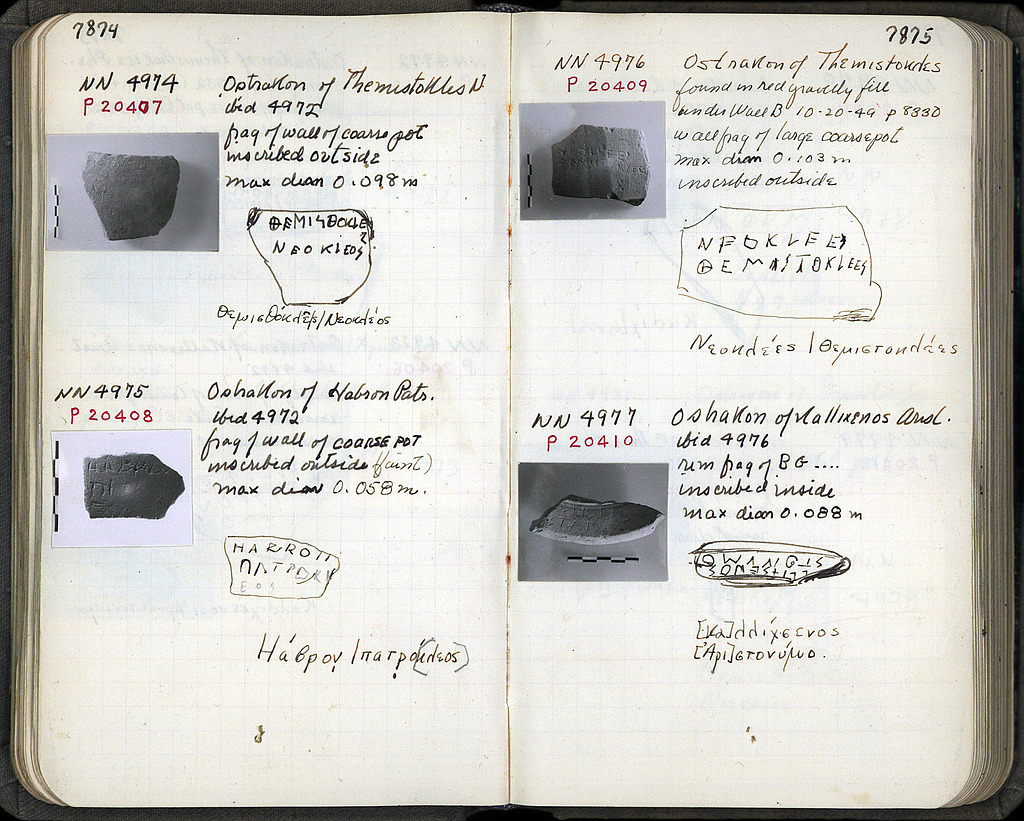 7874
NN 4974
P 20407
Ostrakon of Themistokles N
ibid 4972
frag of wall of coarse pot
inscribed outside
max diam 0.098 m
ΘΕΜΙΣΘΟΚΛΕ
ΝΕΟΚΛΕΟΣ
Θεμισθόκλε͂ς/Νεοκλέος
NN 4975
P 20408
Ostrakon of Habron Patr.
ibid 4972
frag of wall of coarse pot
inscribed outside (faint)
max diam 0.058 m.
ΠΑΤΡΟ
ΕΟΣ
Hάβρον/πατρο[κλέος]
7875
NN 4976
P 20409
Ostrakon of Themistokles
found in red gravelly fill
under Wall B 10-20-49 p 8330
wall frag of large coarse pot
max diam 0.103 m
inscribed outside
ΝΕΟΚΛΕΕΣ
ΘΕΜΙΣΤΟΚΛΕΕΣ
Νεοκλέες /Θεμιστοκλέες
NN 4977
P 20410
Ostrakon of Kallixenos Arist.
ibid 4976
rim frag of BG ....
inscribed inside
max diam 0.088 m
[Κα]λλίχσενος
[Ἀρι]στονύμο.